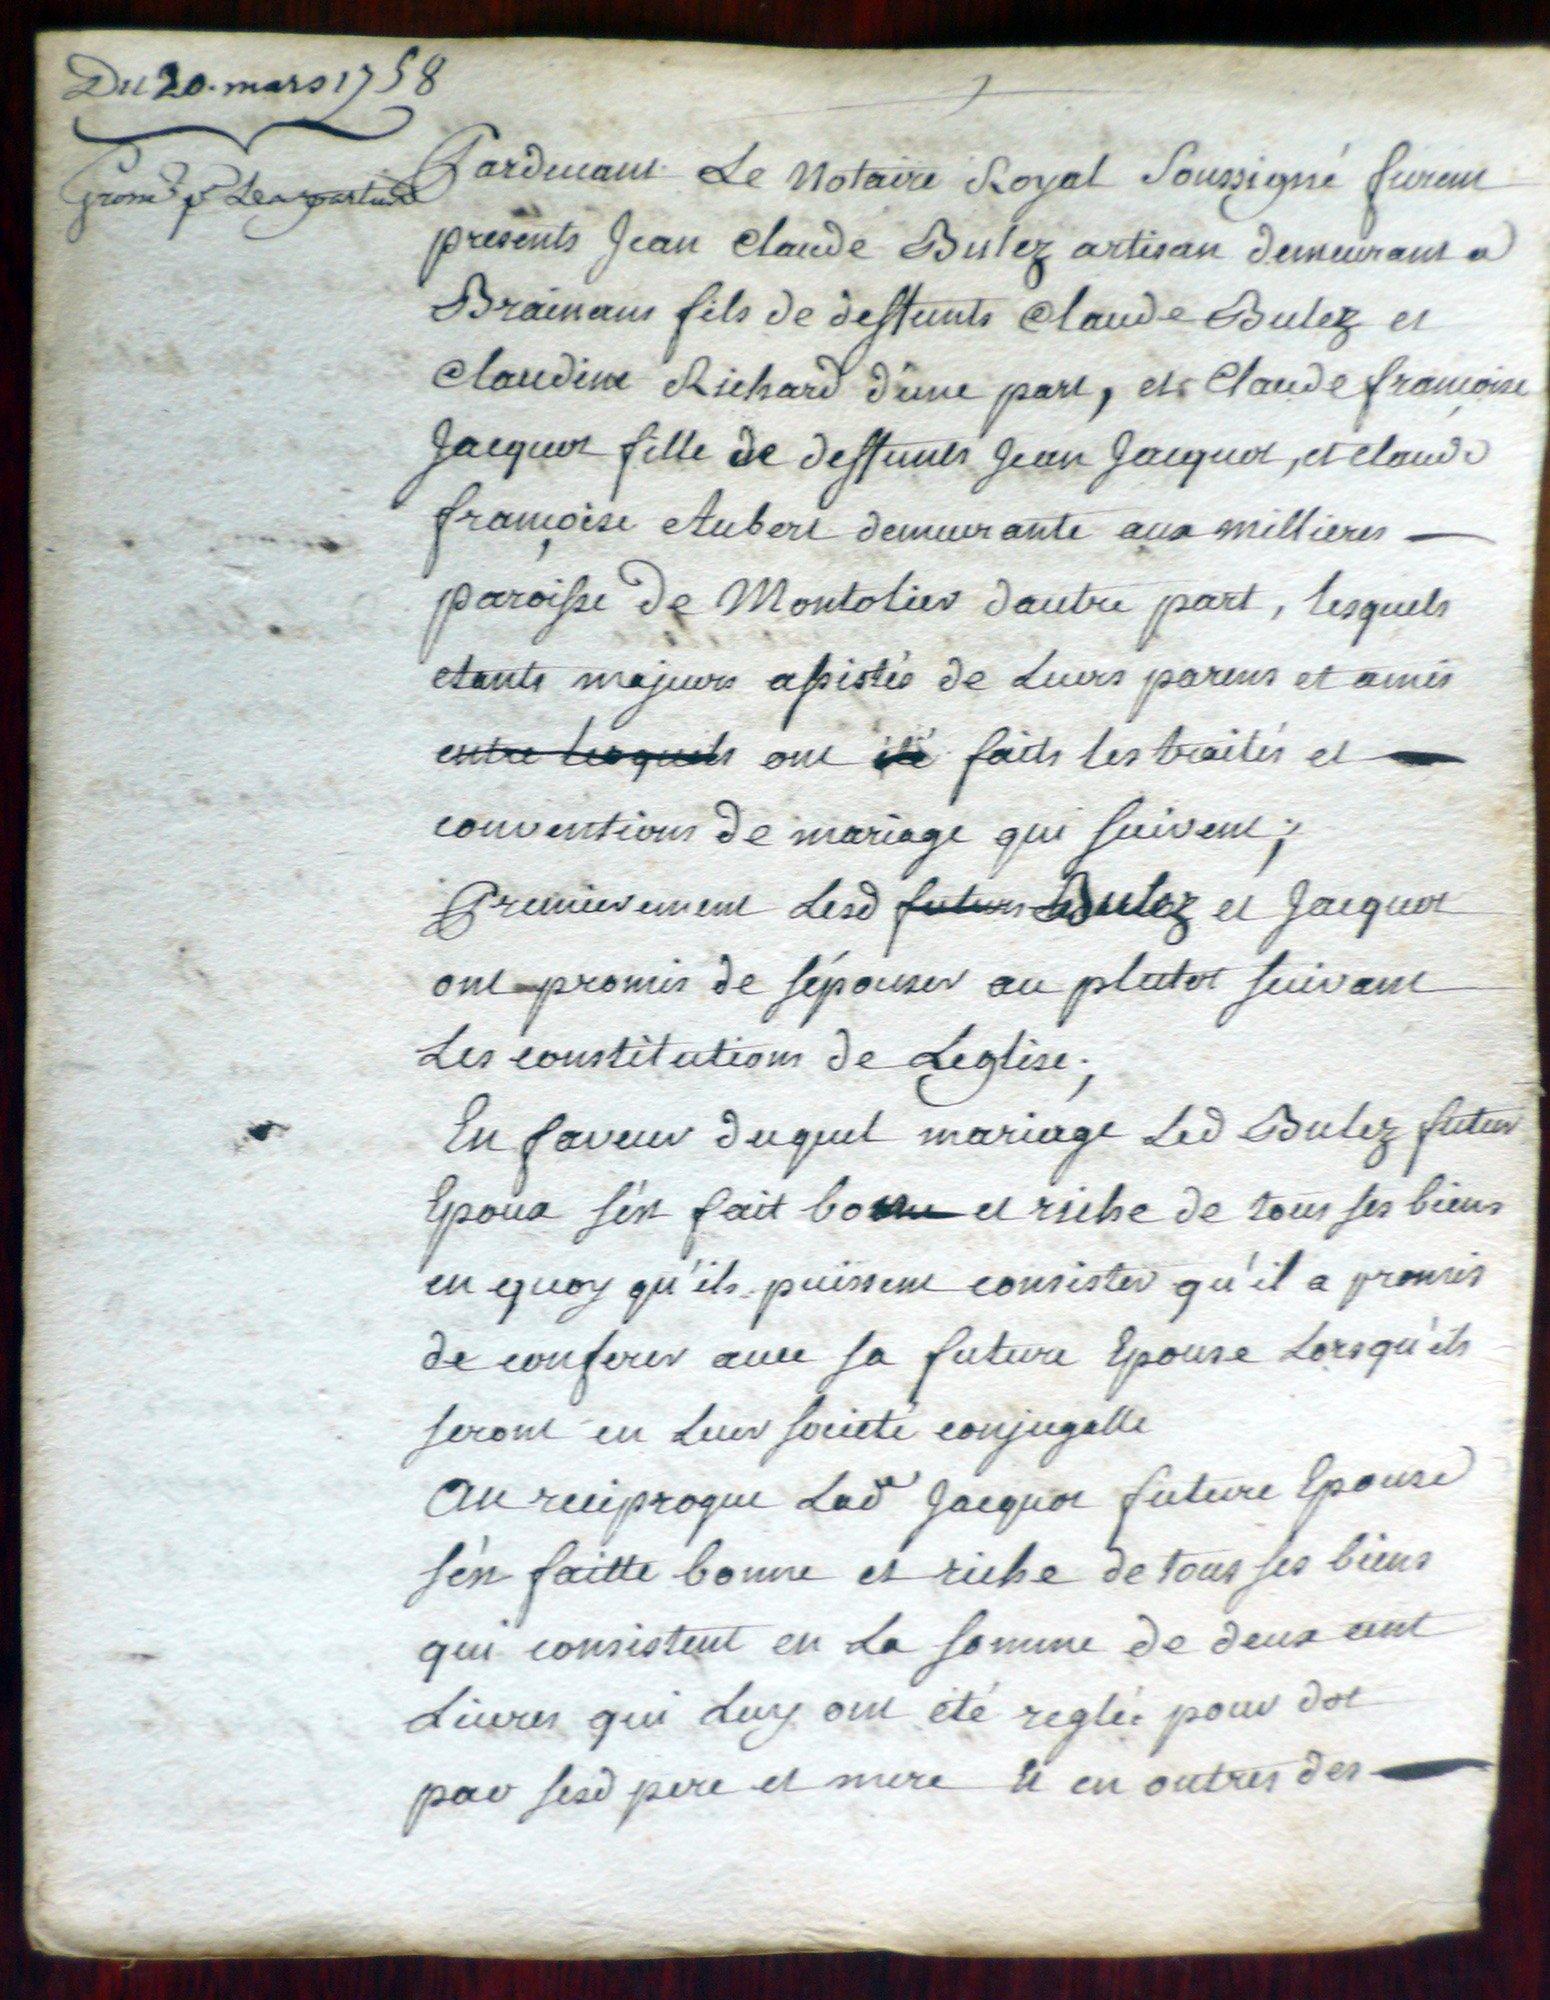 Du 20. mars 1758
Pardevant Le Notaire Royal Soussigné furent
presents Jean Claude Bulez artisan demeurant a
Brainans fils de deffunts Claude Bulez et
Claudine Richard d'une part, et Claude françoise
Jacquot fille de deffunts Jean Jacquot, et claude
françoise Aubert demeurante aux millieres
paroisse de Montolier dautre part, lesquels
etants majeurs assistés de Leurs parens et amis
entre lesquels ont été faits les traités et
conventions de mariage qui suivent;
Premierement Lesd futurs Bulez et Jacquot
ont promis de sépouser au plutot suivant
Les constitutions de Leglise;
En faveur duquel mariage Led Bulez futur
Epoux s'est fait bon et riche de tous ses biens
en quoy qu'ils puissent consister qu'il a promis
de conferer avec sa future Epouse Lorsqu'ils
seront en Leur societé conjugalle
Au reciproque Lad Jacquot future Epouse
s'est faitte bonne et riche de tous ses biens
qui consistent en La somme de deux cent
Livres qui Luy ont été reglée pour dot
par sesd pere et mere Et en outres des